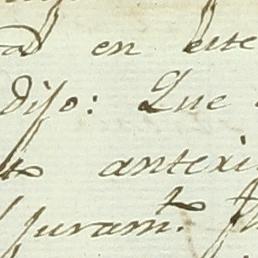 en este
dijo: Que
anteri
juram.to